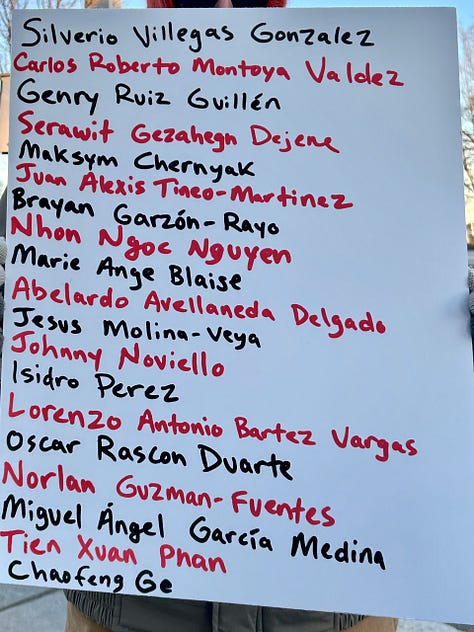 Silverio Villegas Gonzalez
Carlos Roberto Montoya Valdez
Genry Ruiz Guillén
Serawit Gezahegn Dejene
Maksym Chernyak
Juan Alexis Tineo-Martinez
Brayan Garzón-Rayo
Nhon Ngoc Nguyen
Marie Ange Blaise
Abelardo Avellaneda Delgado
Jesus Molina-Veya
Johnny Noviello
Isidro Perez
Lorenzo Antonio Bartez Vargas
Oscar Rascon Duarte
Norlan Guzman-Fuentes
Miguel Ángel García Medina
Tien Xuan Phan
Chaofeng Ge